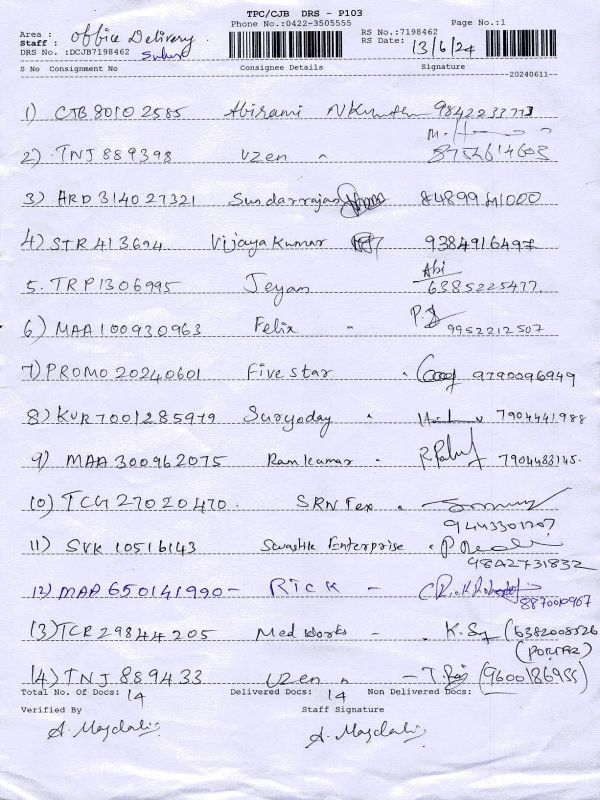 TPC/CJB DRS - P103
Phone No.:0422-3505555 Page No.:1
Area : Office Delivery RS No.:7198462
Staff : RS Date: 13/6/24
DRS No. :DCJB7198462
S No Consignment No Consignee Details Signature
--20240611--
1) CJB 8010 2585 Abirami 9842233773
2) TNJ 889398 Uzen " 8754614603
3) ARD 314027321 Sundarrajan 84899 41000
4) STR 413694 Vijaya Kumar 9384916497
5. TRP1306995 Jeyam Abi 6385225477
6) MAA 100930963 Felix " 9952212507
7) PROMO 20240601 Five star " 9790096949
8) KUR 7001285979 Suryoday " 7904441988
9) MAA 300962075 Ramkumar " 7904483145.
10) TCG 27020470. SRN Tex " 9443301207
11) SVK 10516143 Swastik Enterprise " 9842731832
12) MAA 650141990- RICK - 887001067
13) TCR 29844205 Med Works - K.Sy (6382008526
(PORTER)
14) TNJ 889433 Uzen " - (9600186955)
Total No. Of Docs: 14 Delivered Docs: 14 Non Delivered Docs:
Verified By Staff Signature
A. Magdali A. Magdali